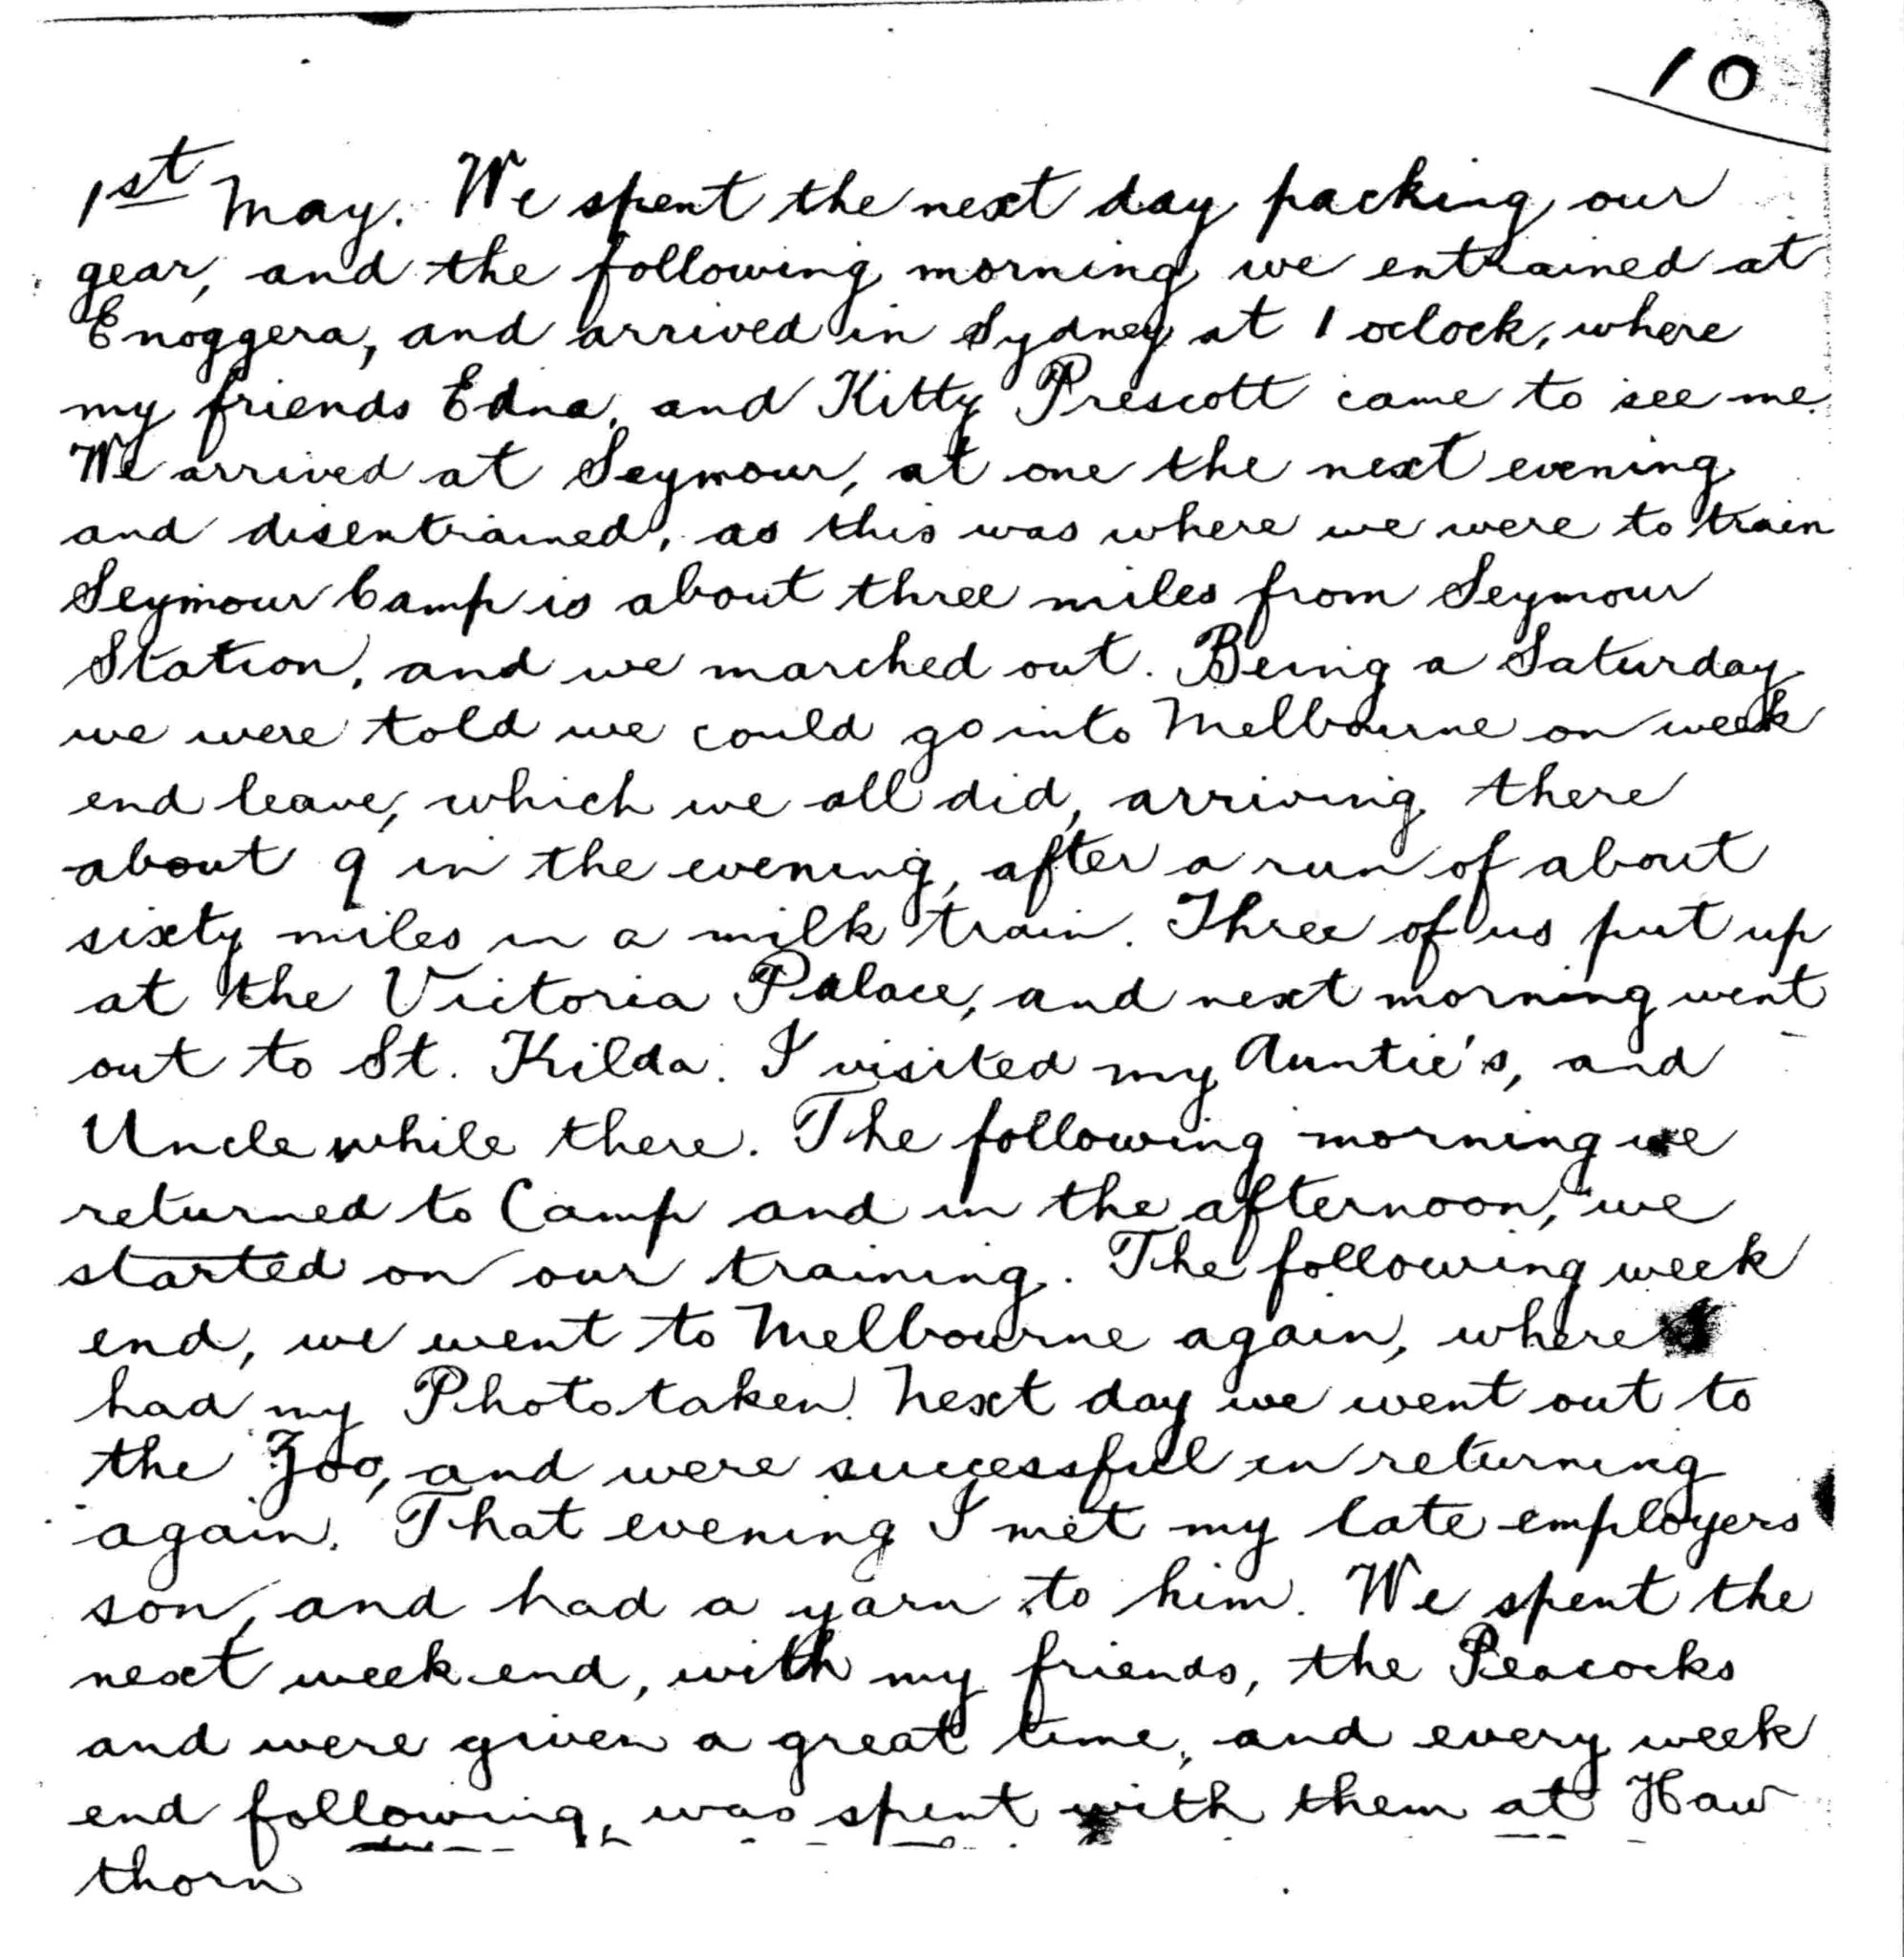 10
1st May. We spent the next day packing our
gear, and the following morning we entrained at
Enoggera, and arrived in Sydney at 1 oclock, where
my friends Edna, and Kitty Prescott came to see me.
We arrived at Seymour, at one the next evening
and disentrained, as this was where we were to train
Seymour Camp is about three miles from Seymour
Station, and we marched out. Being a Saturday
we were told we could go into Melbourne on week
end leave, which we all did, arriving there
about 9 in the evening, after a run of about
sixty miles in a milk train. Three of us put up
at the Victoria Palace, and next morning went
out to St. Kilda. I visited my Auntie's, and
Uncle while there. The following morning we
returned to Camp and in the afternoon, we
started on our training. The following week
end, we went to Melbourne again, where
had my Photo taken. Next day we went out to
the Zoo, and were successful in returning
again. That evening I met my late employers
son, and had a yarn to him. We spent the
next week end, with my friends, the Peacocks
and were given a great time, and every week
end following, was spent with them at Haw
thorn